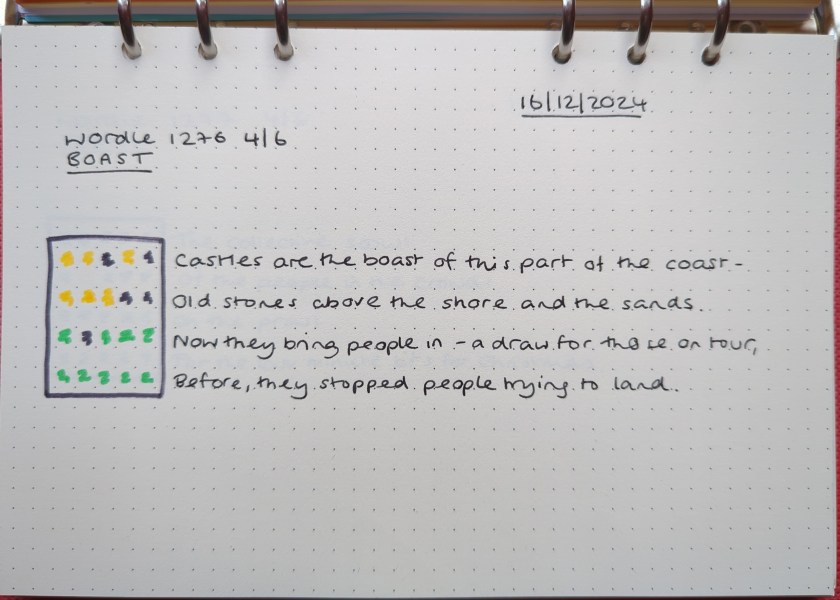 16/12/2024
Wordle 1276 4/6
BOAST
Castles are the boast of this part of the coast -
Old stones above the shore and the sands.
Now they bring people in - a draw for those on tour,
Before, they stopped people trying to land.